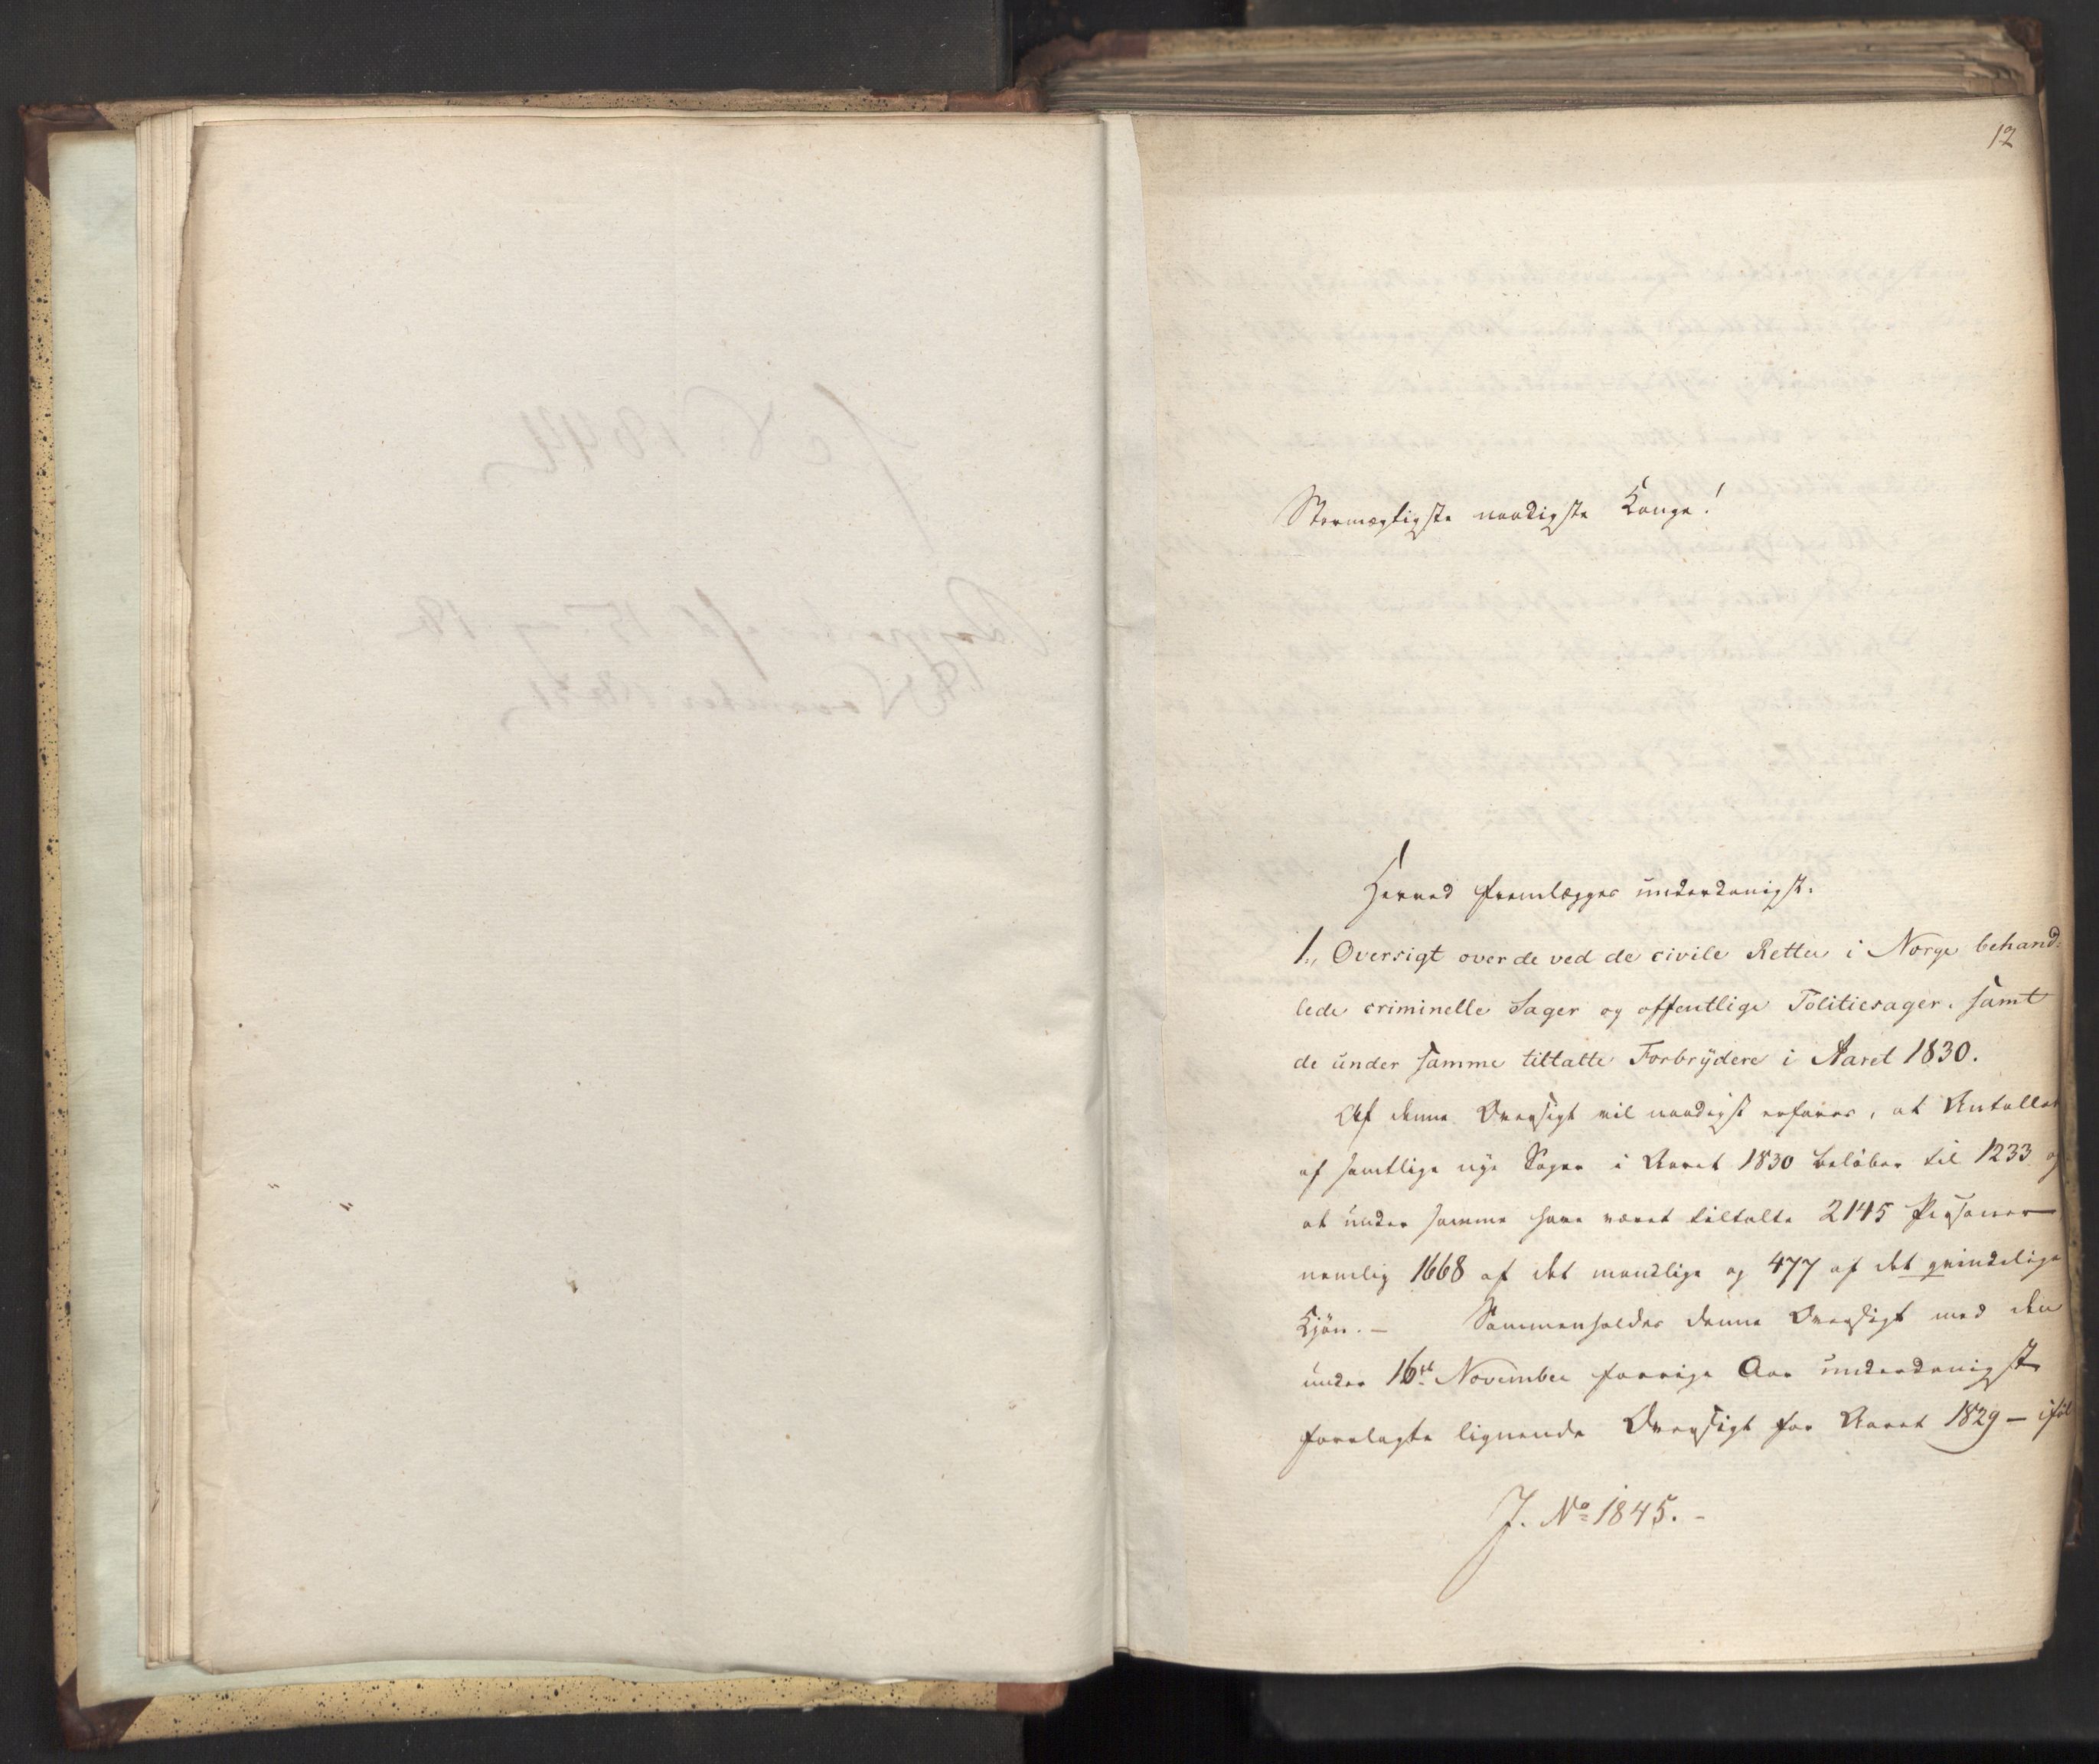 12
Stormægtigste naadigste Konge!
Herved fremlægges underdanigst:
1., Oversigt over de ved de civile Retter i Norge behand=
lede criminelle Sager og offentlige Politiesager, samt
de under samme tiltalte Forbrÿdere i Aaret 1830.
Af denne Oversigt vil naadigst erfares, at Antallet
af samtlige nÿe Sager i Aaret 1830 beløber til 1233 og
at under samme have været tiltalte 2145 Personer
nemlig 1668 af det mandlige og 477 af det qvindelige
Kjøn. – Sammenholdes denne Oversigt med den
under 16de November forrige Aar underdanigst
forelagte lignende Oversigt for Aaret 1829 – iføl
J. No 1845. –